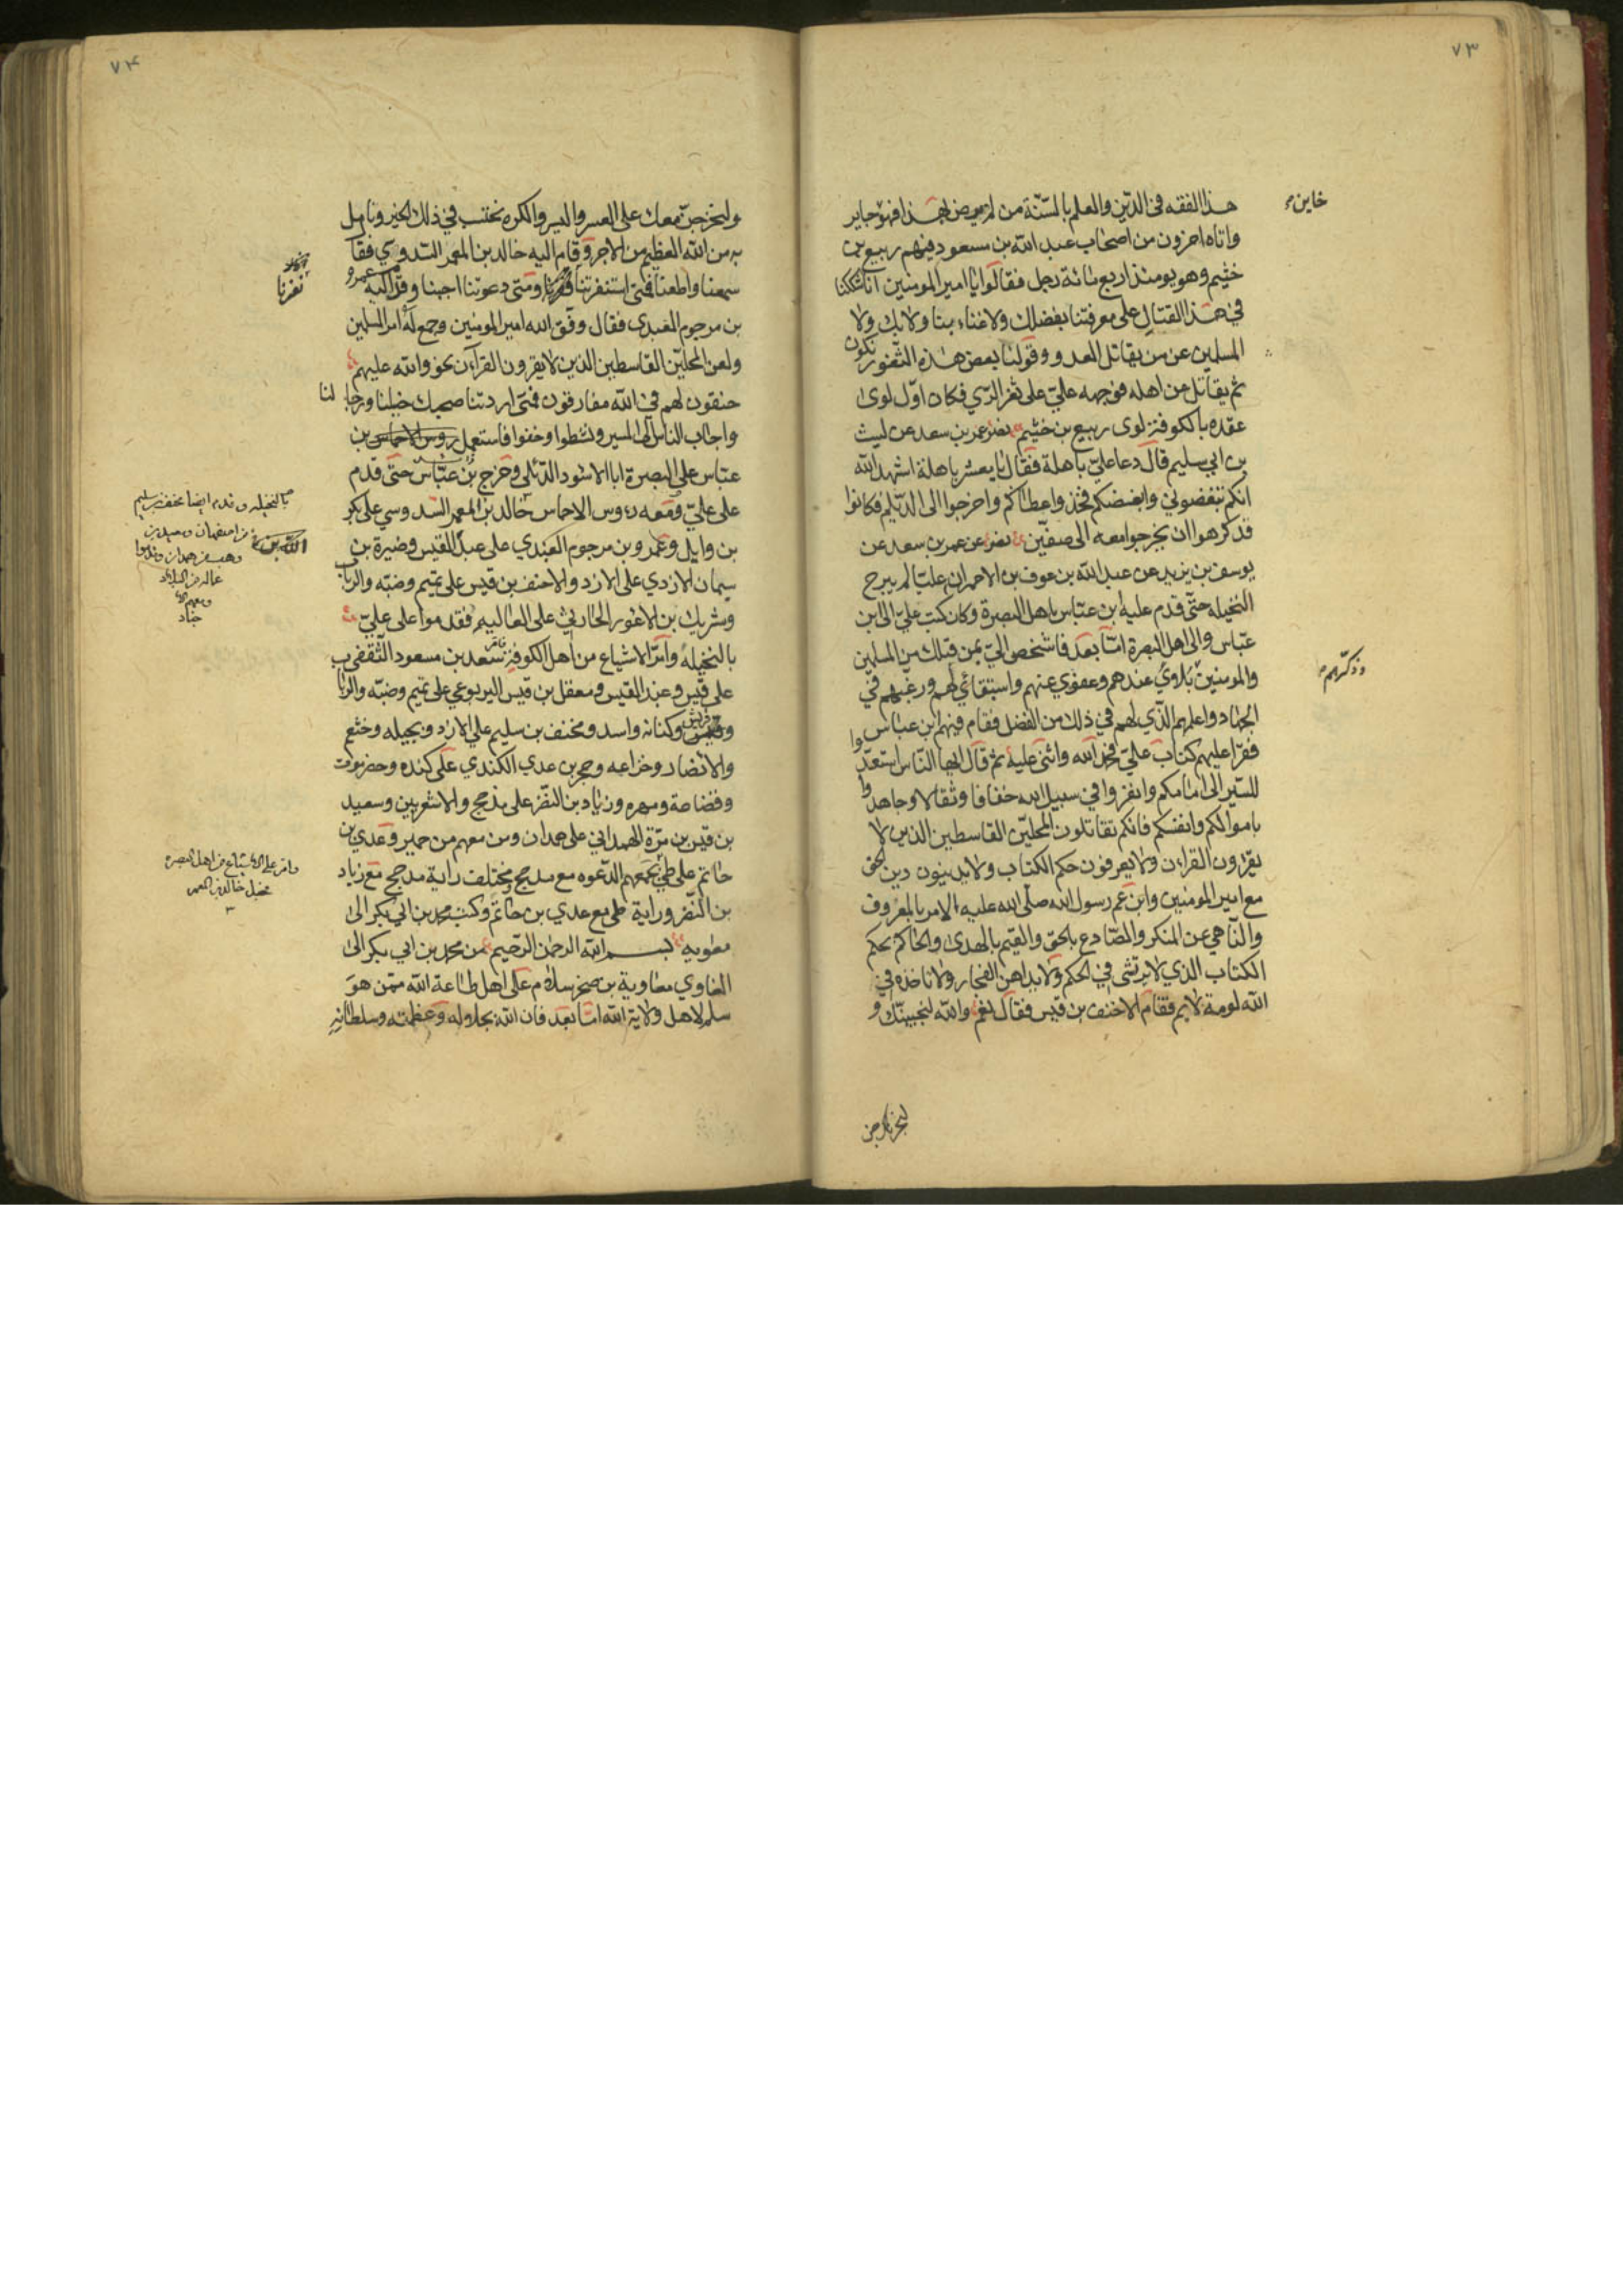 ٧٣
هذا الفقه فى الدين والعلم بالسنة من لم يرض بهذا فهو جاير
خاين
واتاه اخرون من اصحاب عبد الله بن مسعود فيهم ربيع بن
خثيم وهو يومئذ اربع مائة رجل فقالوا يا امير المومنين انا شككنا
في هذا القتال على معرفتنا بفضلك ولا غناء بنا ولا بك ولا
المسلمين عن من يقاتل العدو وقولنا بعض هذه الثغور نكون
ثم يقاتل من اهله فوجهه علي على ثغر الري فكان اول لوى
عقده بالكوفة لوى ربيع بن خثيم نصر عمر بن سعد عن ليث
بن ابي سليم قال دعا علي باهلة فقال يا معشر باهلة اشهد الله
انكم تبغضوني وابغضكم فخذوا عطاكم واخرجوا الى الديلم فكانوا
قد كرهوا ان يخرجوا معه الى صفين نصر عن عمر بن سعد عن
يوسف بن يزيد عن عبد الله بن عوف بن الاحمر ان عليا لم يبرح
النخيلة حتى قدم عليه ابن عباس باهل البصرة وكان كتب علي الى ابن
عباس والى اهل البصرة اما بعد فاشخص الي بمن قبلك من المسلمين
وذكرهم
والمومنين بلاوي عندهم وعفوي عنهم واستبقائي لهم ورغبهم في
الجهاد واعلمهم الذي لهم في ذلك من الفضل فقام فيهم ابن عباس
فقرا عليهم كتاب علي فحمد الله واثنى عليه ثم قال ايها الناس استعدوا
للسير الى امامكم وانفروا في سبيل الله خفافا وثقالا وجاهدوا
باموالكم وانفسكم فانكم تقاتلون المحلين القاسطين الذين لا
يقرؤون القران ولا يعرفون حكم الكتاب ولا يدينون دين الحق
مع امير المومنين وابن عم رسول الله صلى الله عليه الامر بالمعروف
والناهي عن المنكر والصادع بالحق والقيم بالهدى والحاكم بحكم
الكتاب الذي لا يرتشى في الحكم ولا يداهن الفجار ولا تاخذه في
الله لومة لايم فقام الاحنف بن قيس فقال نعم والله لنجيبنك و
لنخرجن
٧٤
ولنخرجن معك على العسر واليسر والكره نحتسب في ذلك الخير ونامل
به من الله العظيم من الاجر وقام اليه خالد بن المعمر السدوسي فقال
سمعنا واطعنا فمتى استنفرتنا نفرنا ومتى دعوتنا اجبنا وقام اليه عمرو
نفرنا
بن مرجوم العبدى فقال وفق الله امير المومنين وجمع له امر المسلمين
ولعن المحلين القاسطين الذين لا يقرون القران نحن والله عليهم
حنقون لهم في الله مفارقون فمتى اردتنا صحبك خيلنا ورجالنا
واجاب الناس الى المسير ونشطوا وخفوا فاستعمل روس الاخماس بن
عباس على البصرة ابا الاسود الدئلي وخرج بن عباس حتى قدم
على علي ومعه روس الاخماس خالد بن المعمر السدوسي على بكر
بن وايل وعمرو بن مرجوم العبدي على عبد القيس وصبرة بن
سيمان الازدي على الازد والاحنف بن قيس على تميم وضبه والرباب
وشريك بن الاعور الحارثي على العاليه فقدموا على علي
بالنخيله وامر الاشياع من اهل الكوفة سعد بن مسعود الثقفي
على قيس وعبد القيس ومعقل بن قيس اليربوعي على تميم وضبه والرباب
وقريش وكنانه واسد ومخنف بن سليم على الازد وبجيله وخثعم
والانصار وخزاعه وحجر بن عدي الكندي على كنده وحضرموت
وقضاعة ومهره وزياد بن النضر على مذحج والاشعريين وسعيد
بن قيس بن مرة الهمداني على همدان ومن معهم من حمير وعدي بن
وامر على الاشياع من اهل البصرة
خالد بن المعمر
حاتم على طي تجمعهم الدعوه مع مذحج وتختلف راية مذحج مع زياد
بن النضر وراية طي مع عدي بن حاتم وكتب محمد بن ابي بكر الى
معويه بسم الله الرحمن الرحيم من محمد بن ابي بكر الى
الغاوي معاوية بن صخر سلام على اهل طاعة الله ممن هو
سلم لاهل ولاية الله اما بعد فان الله بجلاله وعظمته وسلطانه